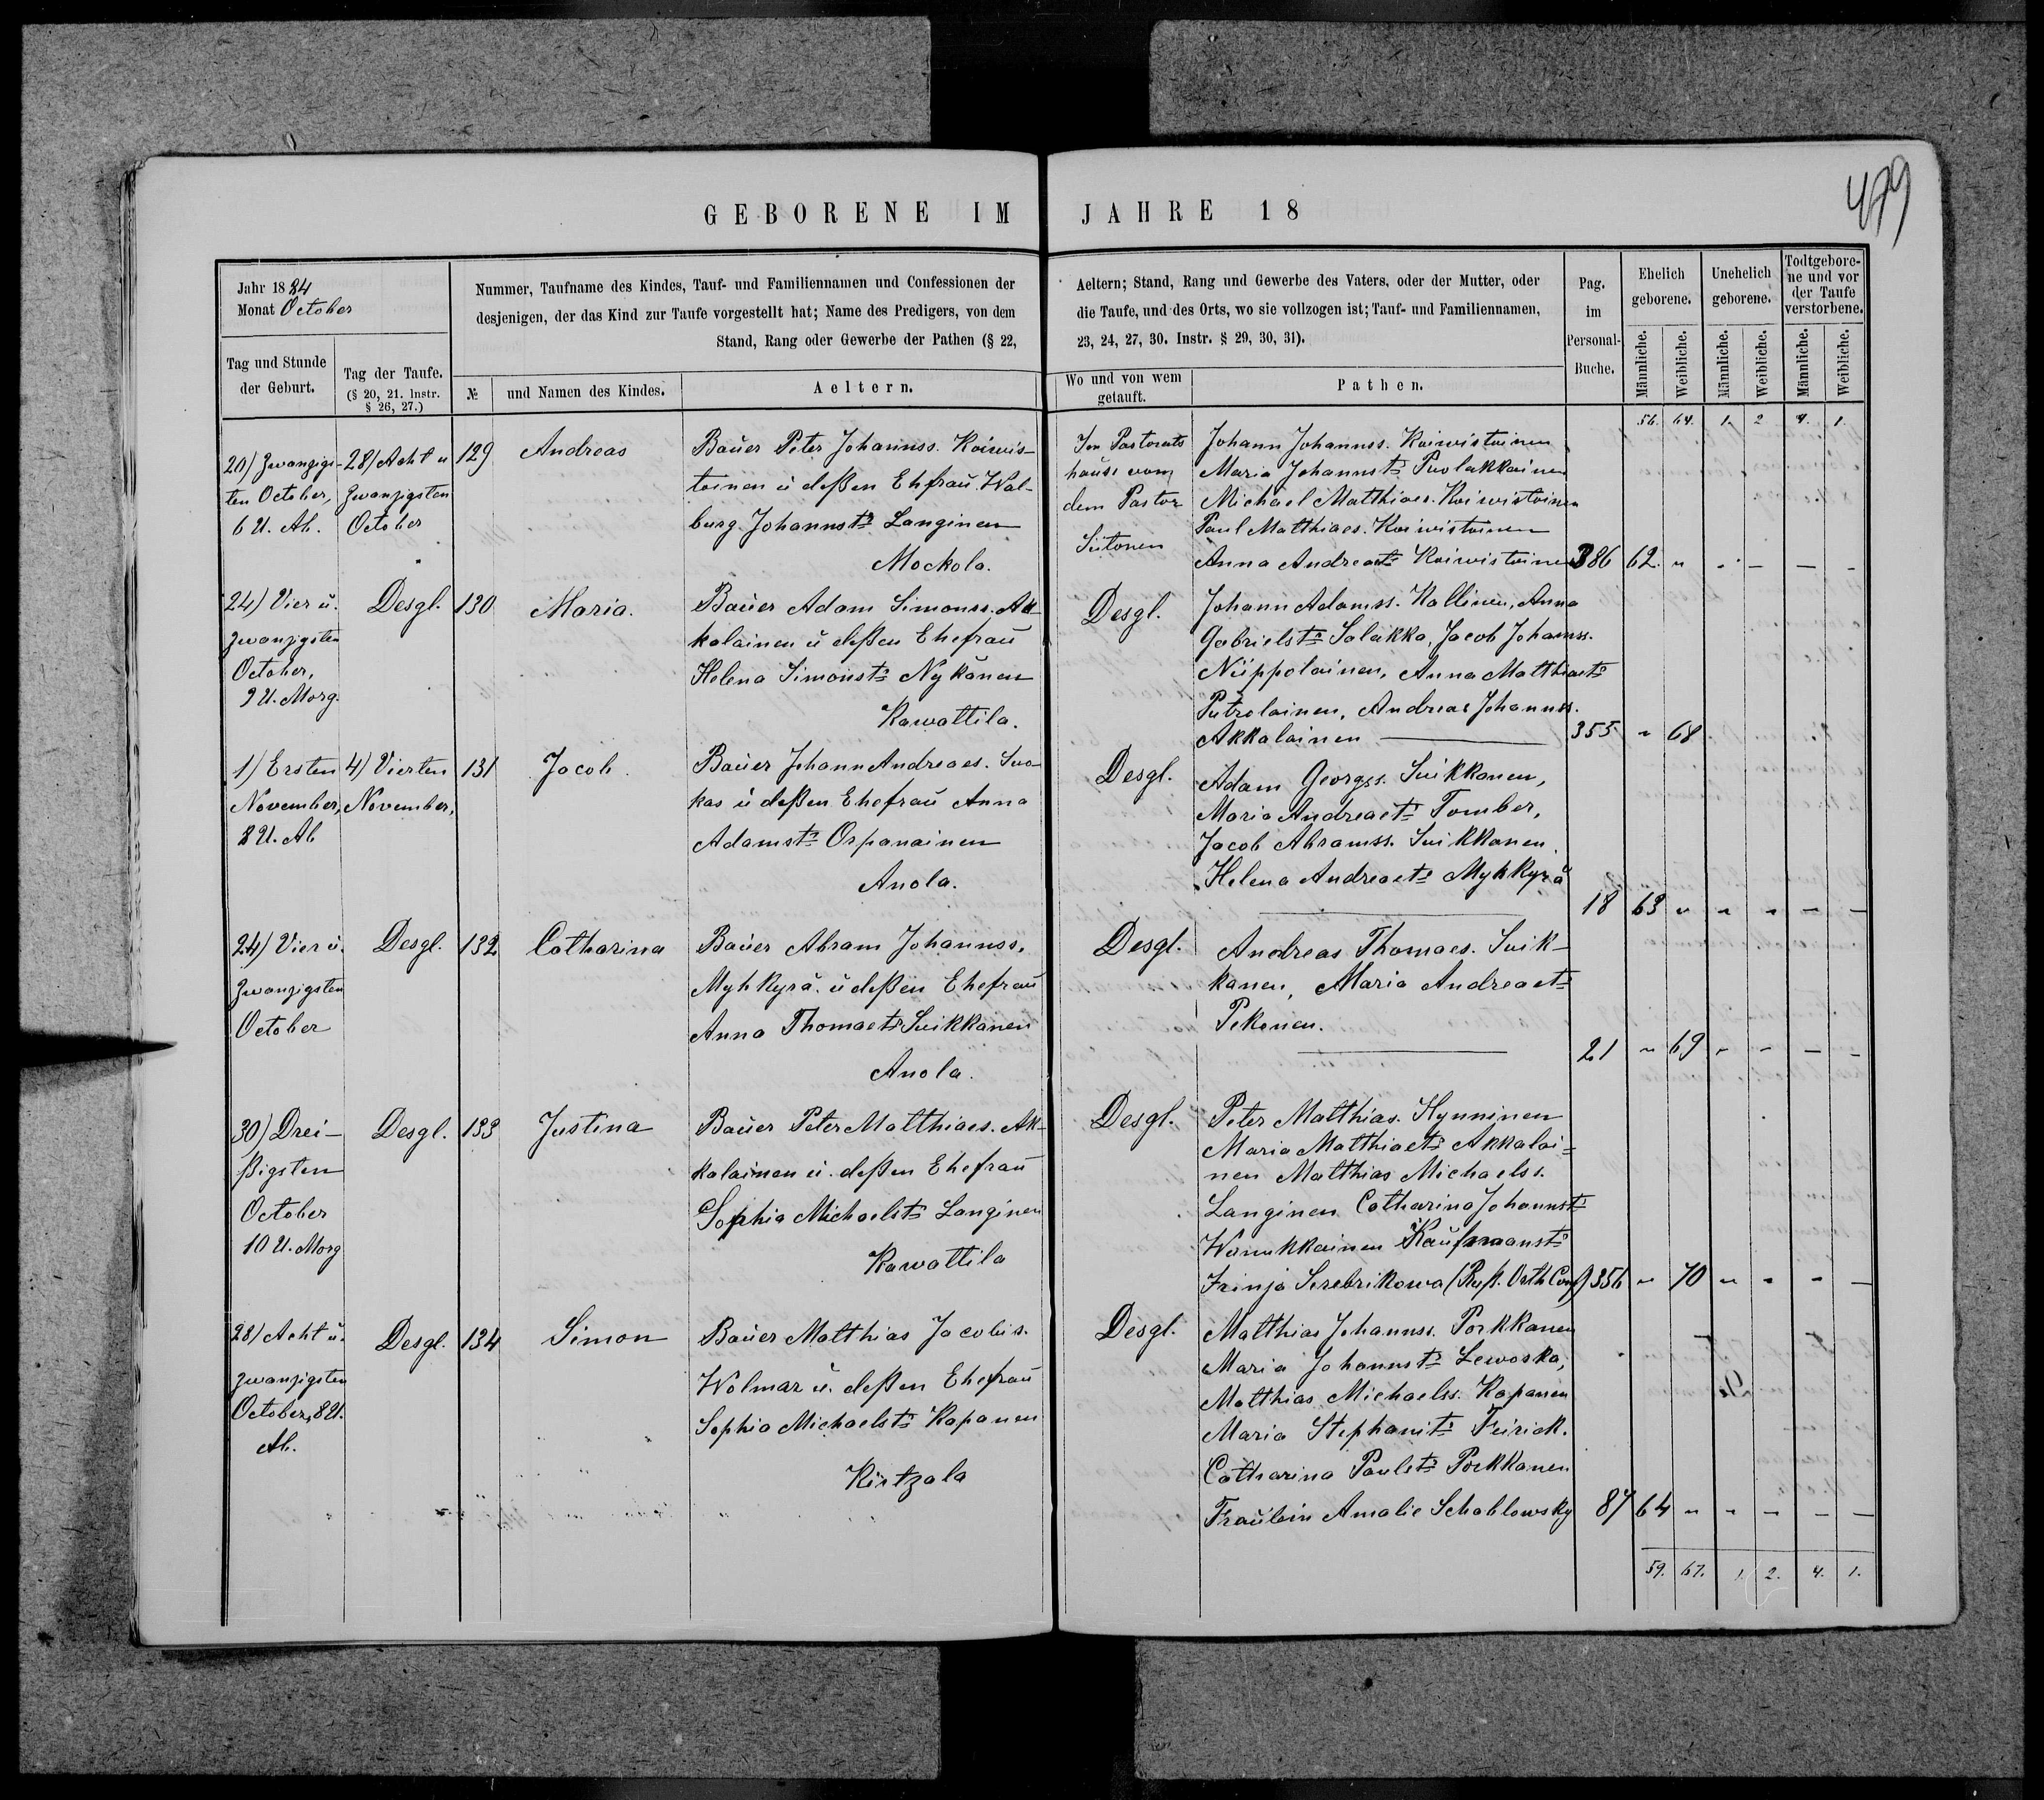 479
GEBORENE IM JAHRE 18
Jahr 1884
Monat October
Nummer, Taufname des Kindes, Tauf- und Familiennamen und Confessionen der
desjenigen, der das Kind zur Taufe vorgestellt hat; Name des Predigers, von dem
Stand, Rang oder Gewerbe der Pathen (§ 22,
Aeltern; Stand, Rang und Gewerbe des Vaters, oder der Mutter, oder
die Taufe, und des Orts, wo sie vollzogen ist; Tauf- und Familiennamen,
23, 24, 27, 30. Instr. § 29, 30, 31).
Pag.
im
Personal-
Buche.
Ehelich
geborene.
Unehelich
geborene.
Todtgebore-
ne und vor
der Taufe
verstorbene.
Männliche.
Weibliche.
Männliche.
Weibliche.
Männliche.
Weibliche.
Tag und Stunde
der Geburt.
Tag der Taufe.
(§ 20, 21. Instr.
§ 26, 27.)
№
und Namen des Kindes.
Aeltern.
Wo und von wem
getauft.
Pathen.
56. 64. 1. 2 4. 1.
20) Zwanzigs-
ten October,
6 U. Ab.
28) Acht u
Zwanzigsten
October
129
Andreas
Bauer Peter Johannss. Koiwis-
toinen u deßen Ehfrau Wal-
burg Johannstr Langinen
Mockola.
Im Pastorats
hause vom
dem Pastor
Siitonen
Johann Johannss. Koiwistoinen
Maria Johannstr Puolakkainen
Michael Matthiaes. Koiwistoinen
Paul Matthiaes. Koiwistoinen
Anna Andreaetr Koiwistoinen
386 62. " - - - -
24) Vier u.
zwanzigsten
October,
9 U. Morg.
Desgl.
130
Maria.
Bauer Adam Simonss. Ak-
kalainen u deßen Ehefrau
Helena Simonstr Nykänen
Kawattila.
Desgl.
Johann Adamss. Kallinen, Anna
Gabrielstr Salakka, Jacob Johannss.
Niippolainen, Anna Matthiaetr
Putrolainen, Andreas Johannss.
Akkalainen
355 " 68
1) Ersten
November,
8 U. Ab
4) Vierten
November,
131
Jacob.
Bauer Johann Andreaes. Suo-
kas u deßen Ehefrau Anna
Adamstr Orpanainen
Anola.
Desgl.
Adam Georgss. Suikkanen,
Maria Andreaetr Tomber,
Jacob Abramss. Suikkanen.
Helena Andreaetr Myhkyrä
18 63 " - - - -
24) Vier u.
Zwanzigsten
October
Desgl.
132
Catharina
Bauer Abram Johannss.
Myhkyrä. u deßen Ehefrau
Anna Thomaetr Suikkanen
Anola.
Desgl.
Andreas Thomaes. Suik-
kanen, Maria Andreaetr
Pekonen.
21 " 69 - - - -
30) Drei-
ßigsten
October
10 U. Morg
Desgl.
133
Justina
Bauer Peter Matthiaes. Ak-
kalainen u. deßen Ehefrau
Sophia Michaelstr Langinen
Kawattila
Desgl.
Peter Matthias. Hynninen
Maria Matthiaetr Akkalai-
nen Matthias Michaelss.
Langinen Catharina Johannstr
Wanukkainen Kaufmannstr
Irinja Serebrikowa (Ruß. Orth Conf)
356 " 70 " - - -
28) Acht u.
zwanzigsten
October, 8 U.
Ab.
Desgl.
134
Simon
Bauer Matthias Jacobis.
Wolmar u. deßen Ehefrau
Sophia Michaelstr Kapanen
Kirtzala
Desgl.
Matthias Johannss. Porkkanen
Maria Johannstr Lewoska,
Matthias Michaelss. Kapanen
Maria Stephanitr Feirick.
Catharina Paulstr Porkkanen
Fräulein Amalie Schablowsky
87 64 " - - - -
59. 67. 1. 2. 4. 1.